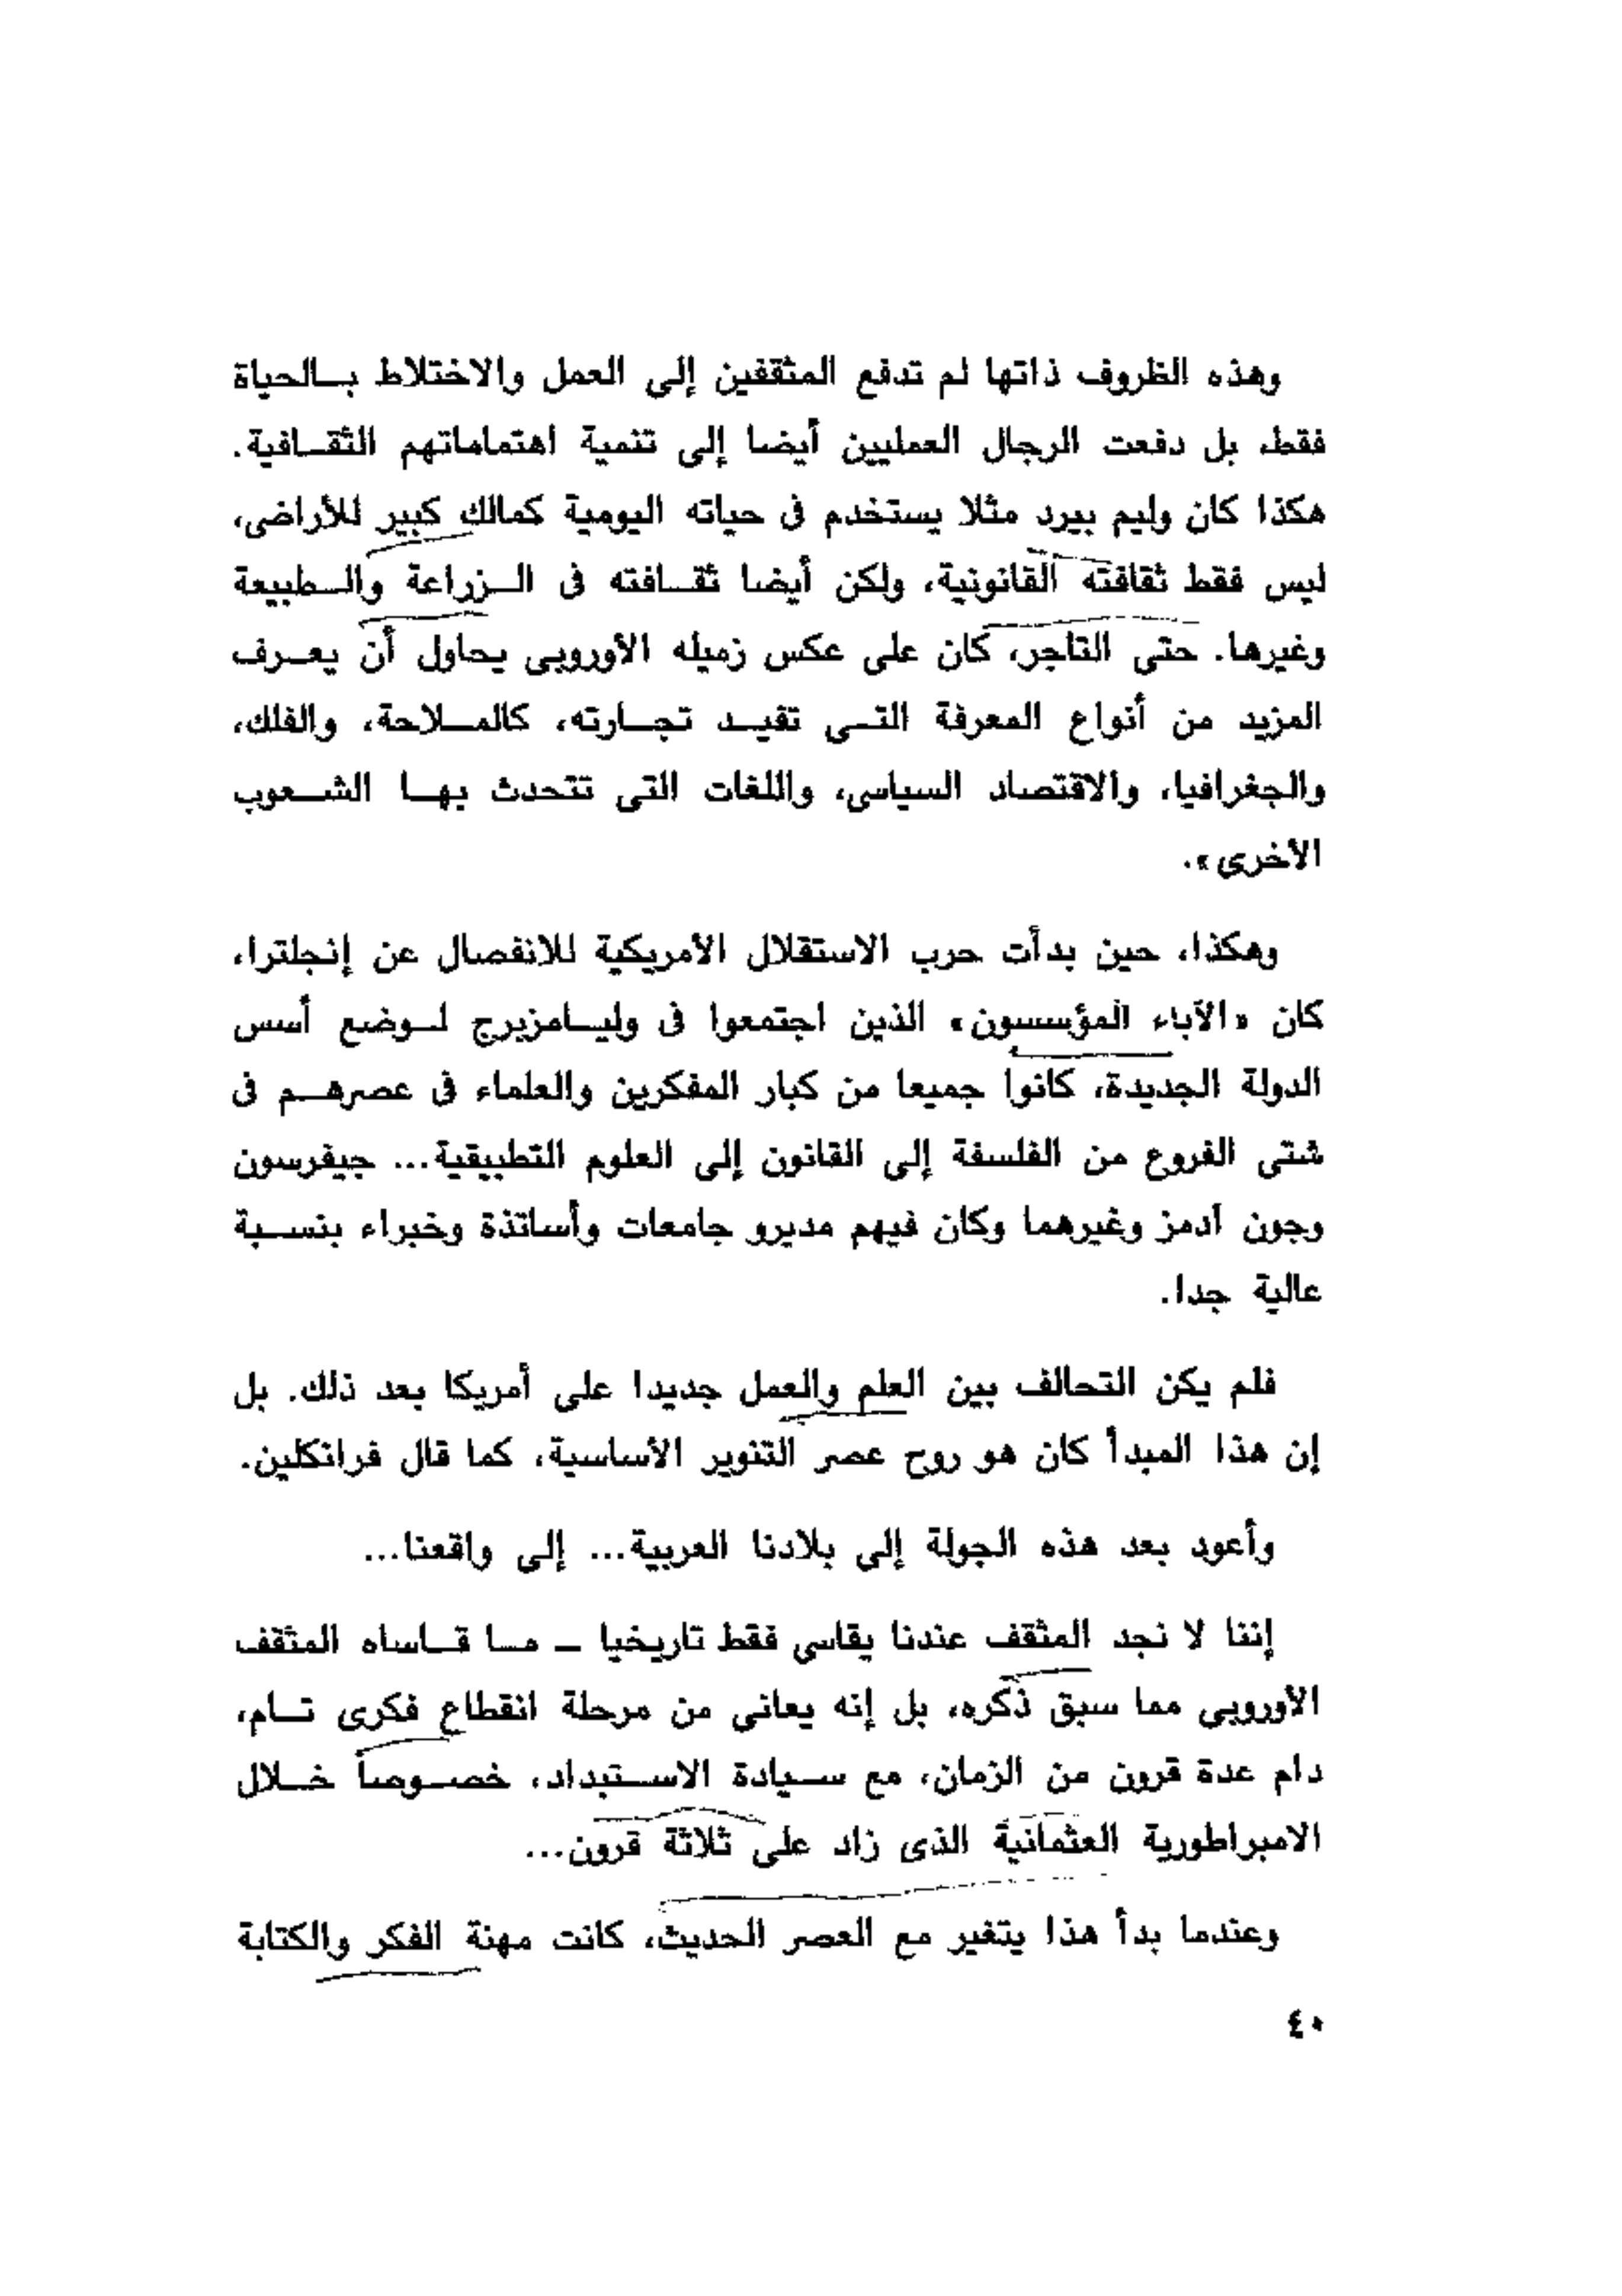 وهذه الظروف ذاتها لم تدفع المثقفين إلى العمل والاختلاط بالحياة
فقط، بل دفعت الرجال العمليين أيضا إلى تنمية اهتماماتهم الثقافية.
هكذا كان وليم بيرد مثلا يستخدم فى حياته اليومية كمالك كبير للأراضى،
ليس فقط ثقافته القانونية، ولكن أيضا ثقافته فى الزراعة والطبيعة
وغيرها. حتى التاجر، كان على عكس زميله الأوروبى يحاول أن يعرف
المزيد من أنواع المعرفة التى تفيد تجارته، كالملاحة، والفلك،
والجغرافيا، والاقتصاد السياسى، واللغات التى تتحدث بها الشعوب
الأخرى».
وهكذا، حين بدأت حرب الاستقلال الأمريكية للانفصال عن إنجلترا،
كان «الآباء المؤسسون» الذين اجتمعوا فى وليامزبرج لوضع أسس
الدولة الجديدة، كانوا جميعا من كبار المفكرين والعلماء فى عصرهم فى
شتى الفروع من الفلسفة إلى القانون إلى العلوم التطبيقية... جيفرسون
وجون آدمز وغيرهما وكان فيهم مديرو جامعات وأساتذة وخبراء بنسبة
عالية جدا.
فلم يكن التحالف بين العلم والعمل جديدا على أمريكا بعد ذلك. بل
إن هذا المبدأ كان هو روح عصر التنوير الأساسية، كما قال فرانكلين.
وأعود بعد هذه الجولة إلى بلادنا العربية... إلى واقعنا...
إننا لا نجد المثقف عندنا يقاسى فقط تاريخيا ــ ما قاساه المثقف
الأوروبى مما سبق ذكره، بل إنه يعانى من مرحلة انقطاع فكرى تام،
دام عدة قرون من الزمان، مع سيادة الاستبداد، خصوصاً خلال
الامبراطورية العثمانية الذى زاد على ثلاثة قرون...
وعندما بدأ هذا يتغير مع العصر الحديث، كانت مهنة الفكر والكتابة
٤٠